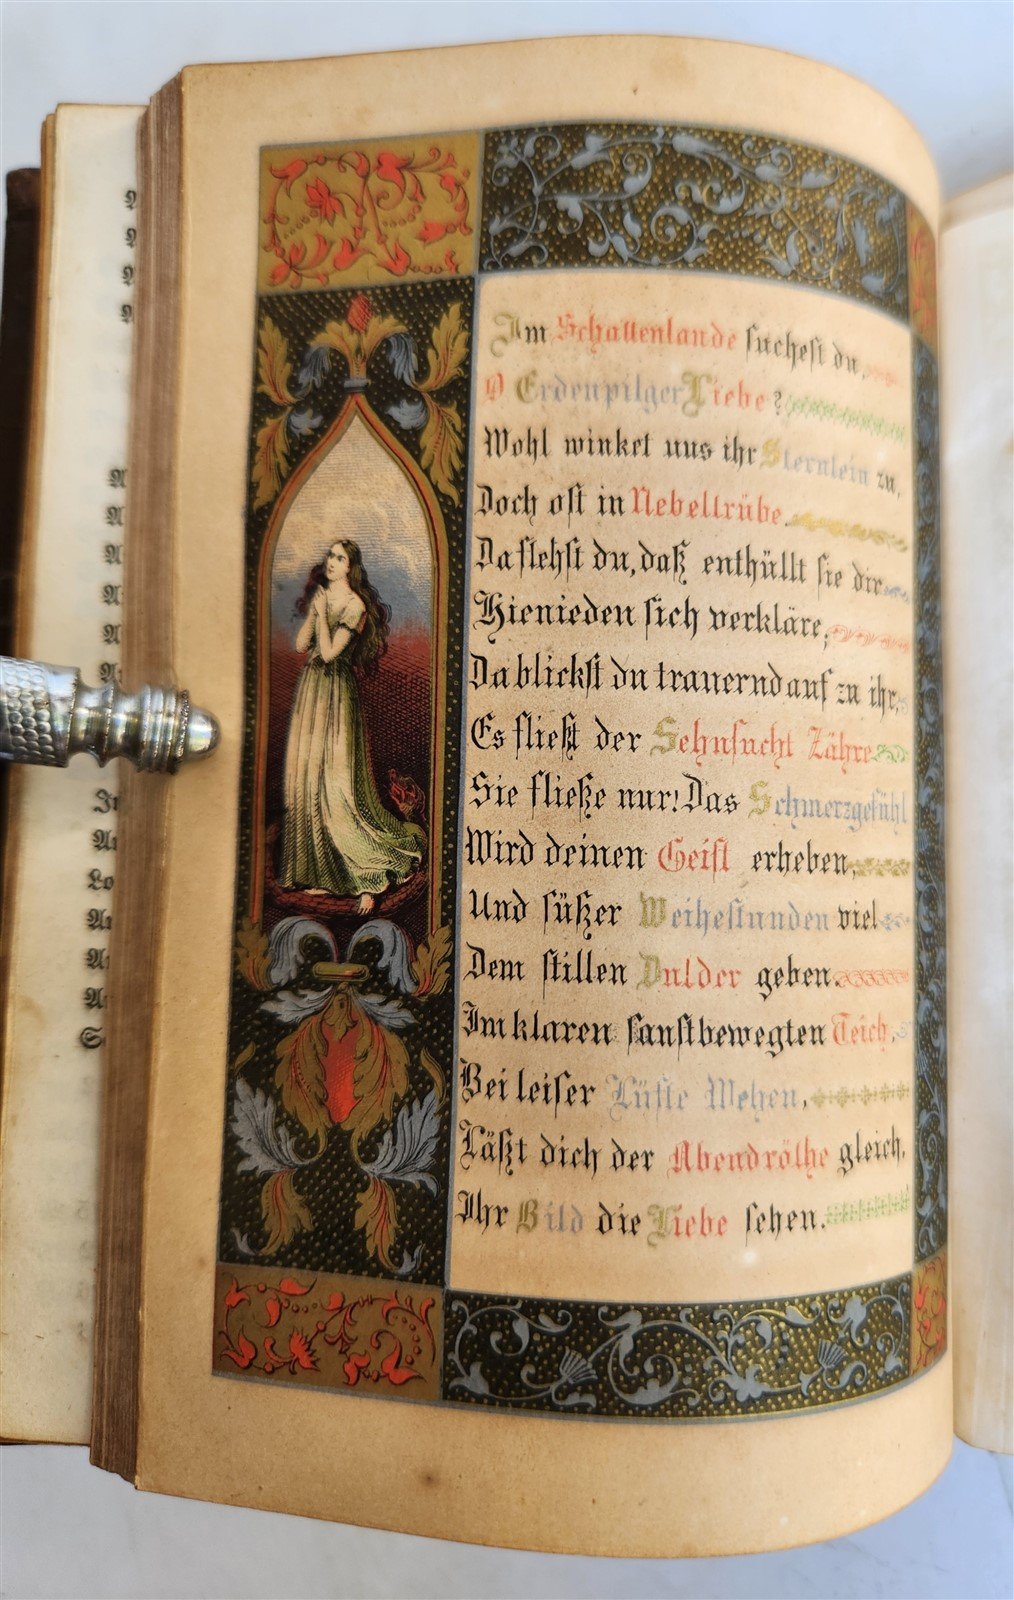 Im Schattenlande suchest du,
O Erdenpilger Liebe?
Wohl winket uns ihr Sternlein zu,
Doch oft in Nebeltrübe.
Da flehst du, daß enthüllt sie dir
Hienieden sich verkläre;
Da blickst du trauernd auf zu ihr,
Es fließt der Sehnsucht Zähre
Sie fließe nur! Das Schmerzgefühl
Wird deinen Geist erheben,
Und süßer Weihestunden viel
Dem stillen Dulder geben.
Im klaren sanftbewegten Teich,
Bei leiser Lüfte Wehen,
Läßt dich der Abendröthe gleich,
Ihr Bild die Liebe sehen.